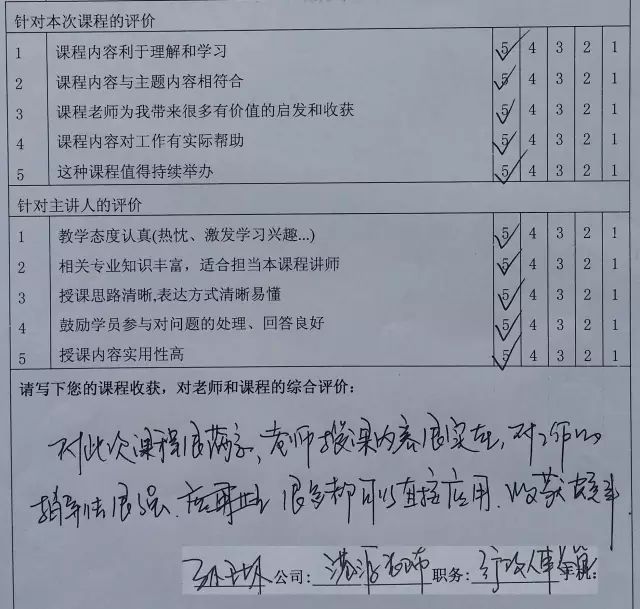 针对本次课程的评价
1 课程内容利于理解和学习 5 4 3 2 1
2 课程内容与主题内容相符合 5 4 3 2 1
3 课程老师为我带来很多有价值的启发和收获 5 4 3 2 1
4 课程内容对工作有实际帮助 5 4 3 2 1
5 这种课程值得持续举办 5 4 3 2 1
针对主讲人的评价
1 教学态度认真(热忱、激发学习兴趣...) 5 4 3 2 1
2 相关专业知识丰富，适合担当本课程讲师 5 4 3 2 1
3 授课思路清晰,表达方式清晰易懂 5 4 3 2 1
4 鼓励学员参与对问题的处理、回答良好 5 4 3 2 1
5 授课内容实用性高 5 4 3 2 1
请写下您的课程收获，对老师和课程的综合评价：
对此次课程很满意，老师授课内容很实在，对工作的
指导性很强、很多都可以直接应用、收获
公司: 职务: 行政人事